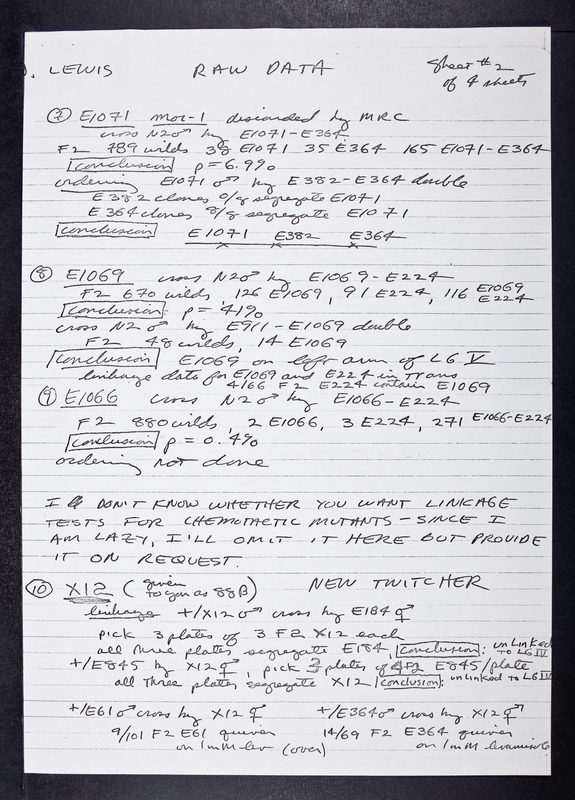 . LEWIS RAW DATA Sheet #2
of 4 sheets
⑦ E1071 mor-1 discarded by MRC
cross N2♂ by E1071-E364
F2 789 wilds 38 E1071 35 E364 165 E1071-E364
conclusion p=6.9%
ordering E1071 ♂ by E382-E364 double
E382 clones 0/8 segregate E1071
E364 clones 8/8 segregate E1071
conclusion E1071 E382 E364
⑧ E1069 cross N2♂ by E1069-E224
F2 670 wilds, 126 E1069, 91 E224, 116 E1069
E224
conclusion: p= 41%
cross N2 ♂ by E911-E1069 double
F2 48 wilds, 14 E1069
conclusion E1069 on left arm of LG V
linkage data for E1069 and E224 in trans
4/66 F2 E224 contain E1069
⑨ E1066 cross N2♂ by E1066-E224
F2 880 wilds, 2 E1066, 3 E224, 271 E1066-E224
conclusion p=0.4%
ordering not done
I DON'T KNOW WHETHER YOU WANT LINKAGE
TESTS FOR CHEMOTACTIC MUTANTS - SINCE I
AM LAZY, I'LL OMIT IT HERE BUT PROVIDE
IT ON REQUEST.
⑩ X12 (given
to you as 88B) NEW TWITCHER
linkage +/X12♂ cross by E184 ♀
pick 3 plates of 3 F2 X12 each
all three plates segregate E184, conclusion: unlinked
to LG IV
+/E845 by X12 ♀, pick 3 plates of 4 F2 E845/plate
all three plates segregate X12 conclusion: unlinked to LG III
+/E61♂ cross by X12 ♀ +/E364♂ cross by X12 ♀
9/101 F2 E61 quiver 14/69 F2 E364 quiver
on 1mM lev (over) on 1mM levamisole